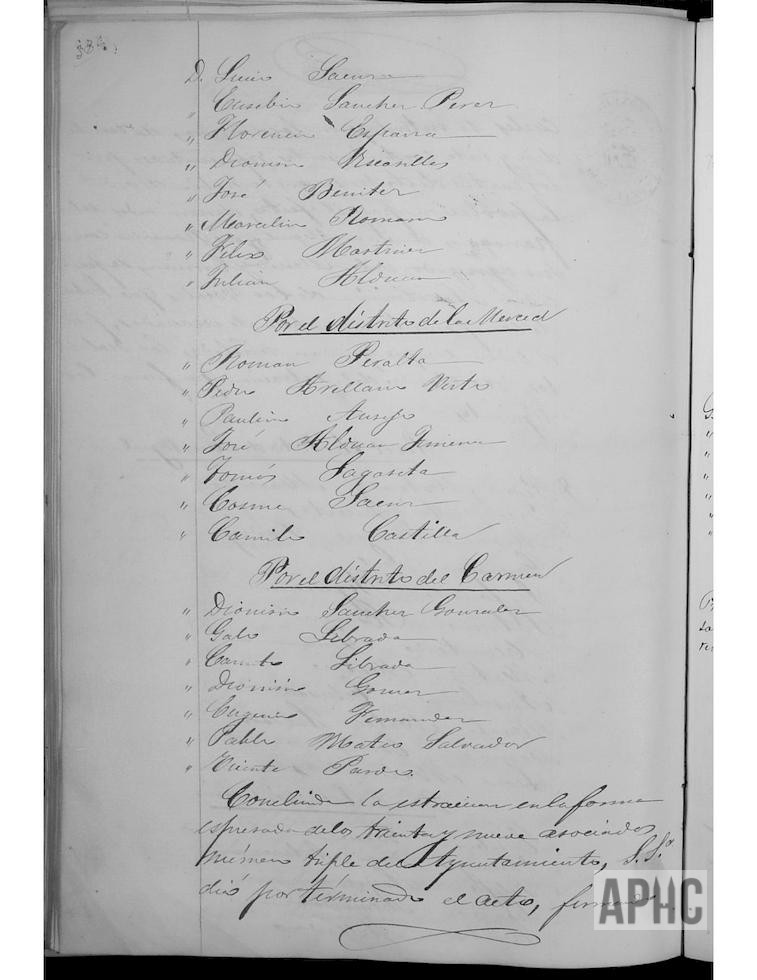 D. Lucio Saenz
" Eusebio Sanchez Perez
" Florencio España
" Dionisio Escarilla
" José Benitez
" Marcelino Romano
" Felix Martinez
" Julian Alduan
Por el distrito de la Merced
" Roman Peralta
" Pedro Arellano Virto
" Paulino Ausejo
" José Alduan Jimenez
" Tomás Sagaseta
" Cosme Saenz
" Camilo Castilla
Por el distrito del Carmen
" Dionisio Sanchez Gonzalez
" Galo Librada
" Canuto Librada
" Dionisio Gomez
" Eugenio Fernandez
" Pablo Mateo Salvador
" Vicente Pardo.
Concluida la estraccion en la forma
espresada de los treinta y nueve asociados,
número triple del Ayuntamiento, S.Sª
dió por terminado el acto, firmando
APHC